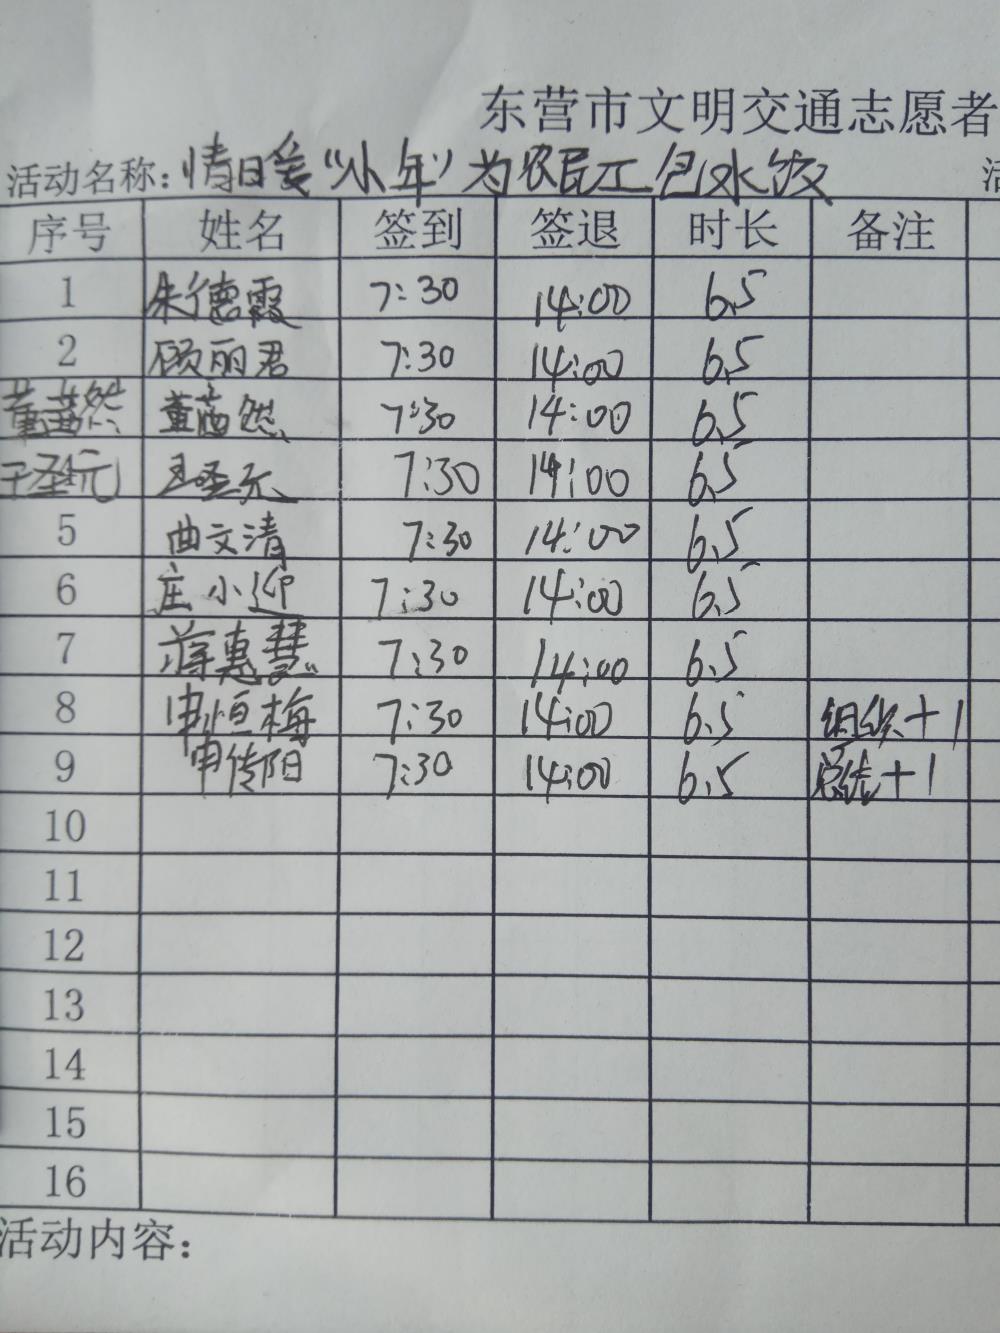 东营市文明交通志愿者
活动名称：情日爱"小年"为农民工包水饺 活
序号 姓名 签到 签退 时长 备注
1 朱德霞 7:30 14:00 6.5
2 顾丽君 7:30 14:00 6.5
董茜然 董茜然 7:30 14:00 6.5
于圣元 于圣元 7:30 14:00 6.5
5 曲文清 7:30 14:00 6.5
6 庄小迎 7:30 14:00 6.5
7 蒋惠慧 7:30 14:00 6.5
8 申恒梅 7:30 14:00 6.5 组织+1
9 申传阳 7:30 14:00 6.5 总结+1
10
11
12
13
14
15
16
活动内容：